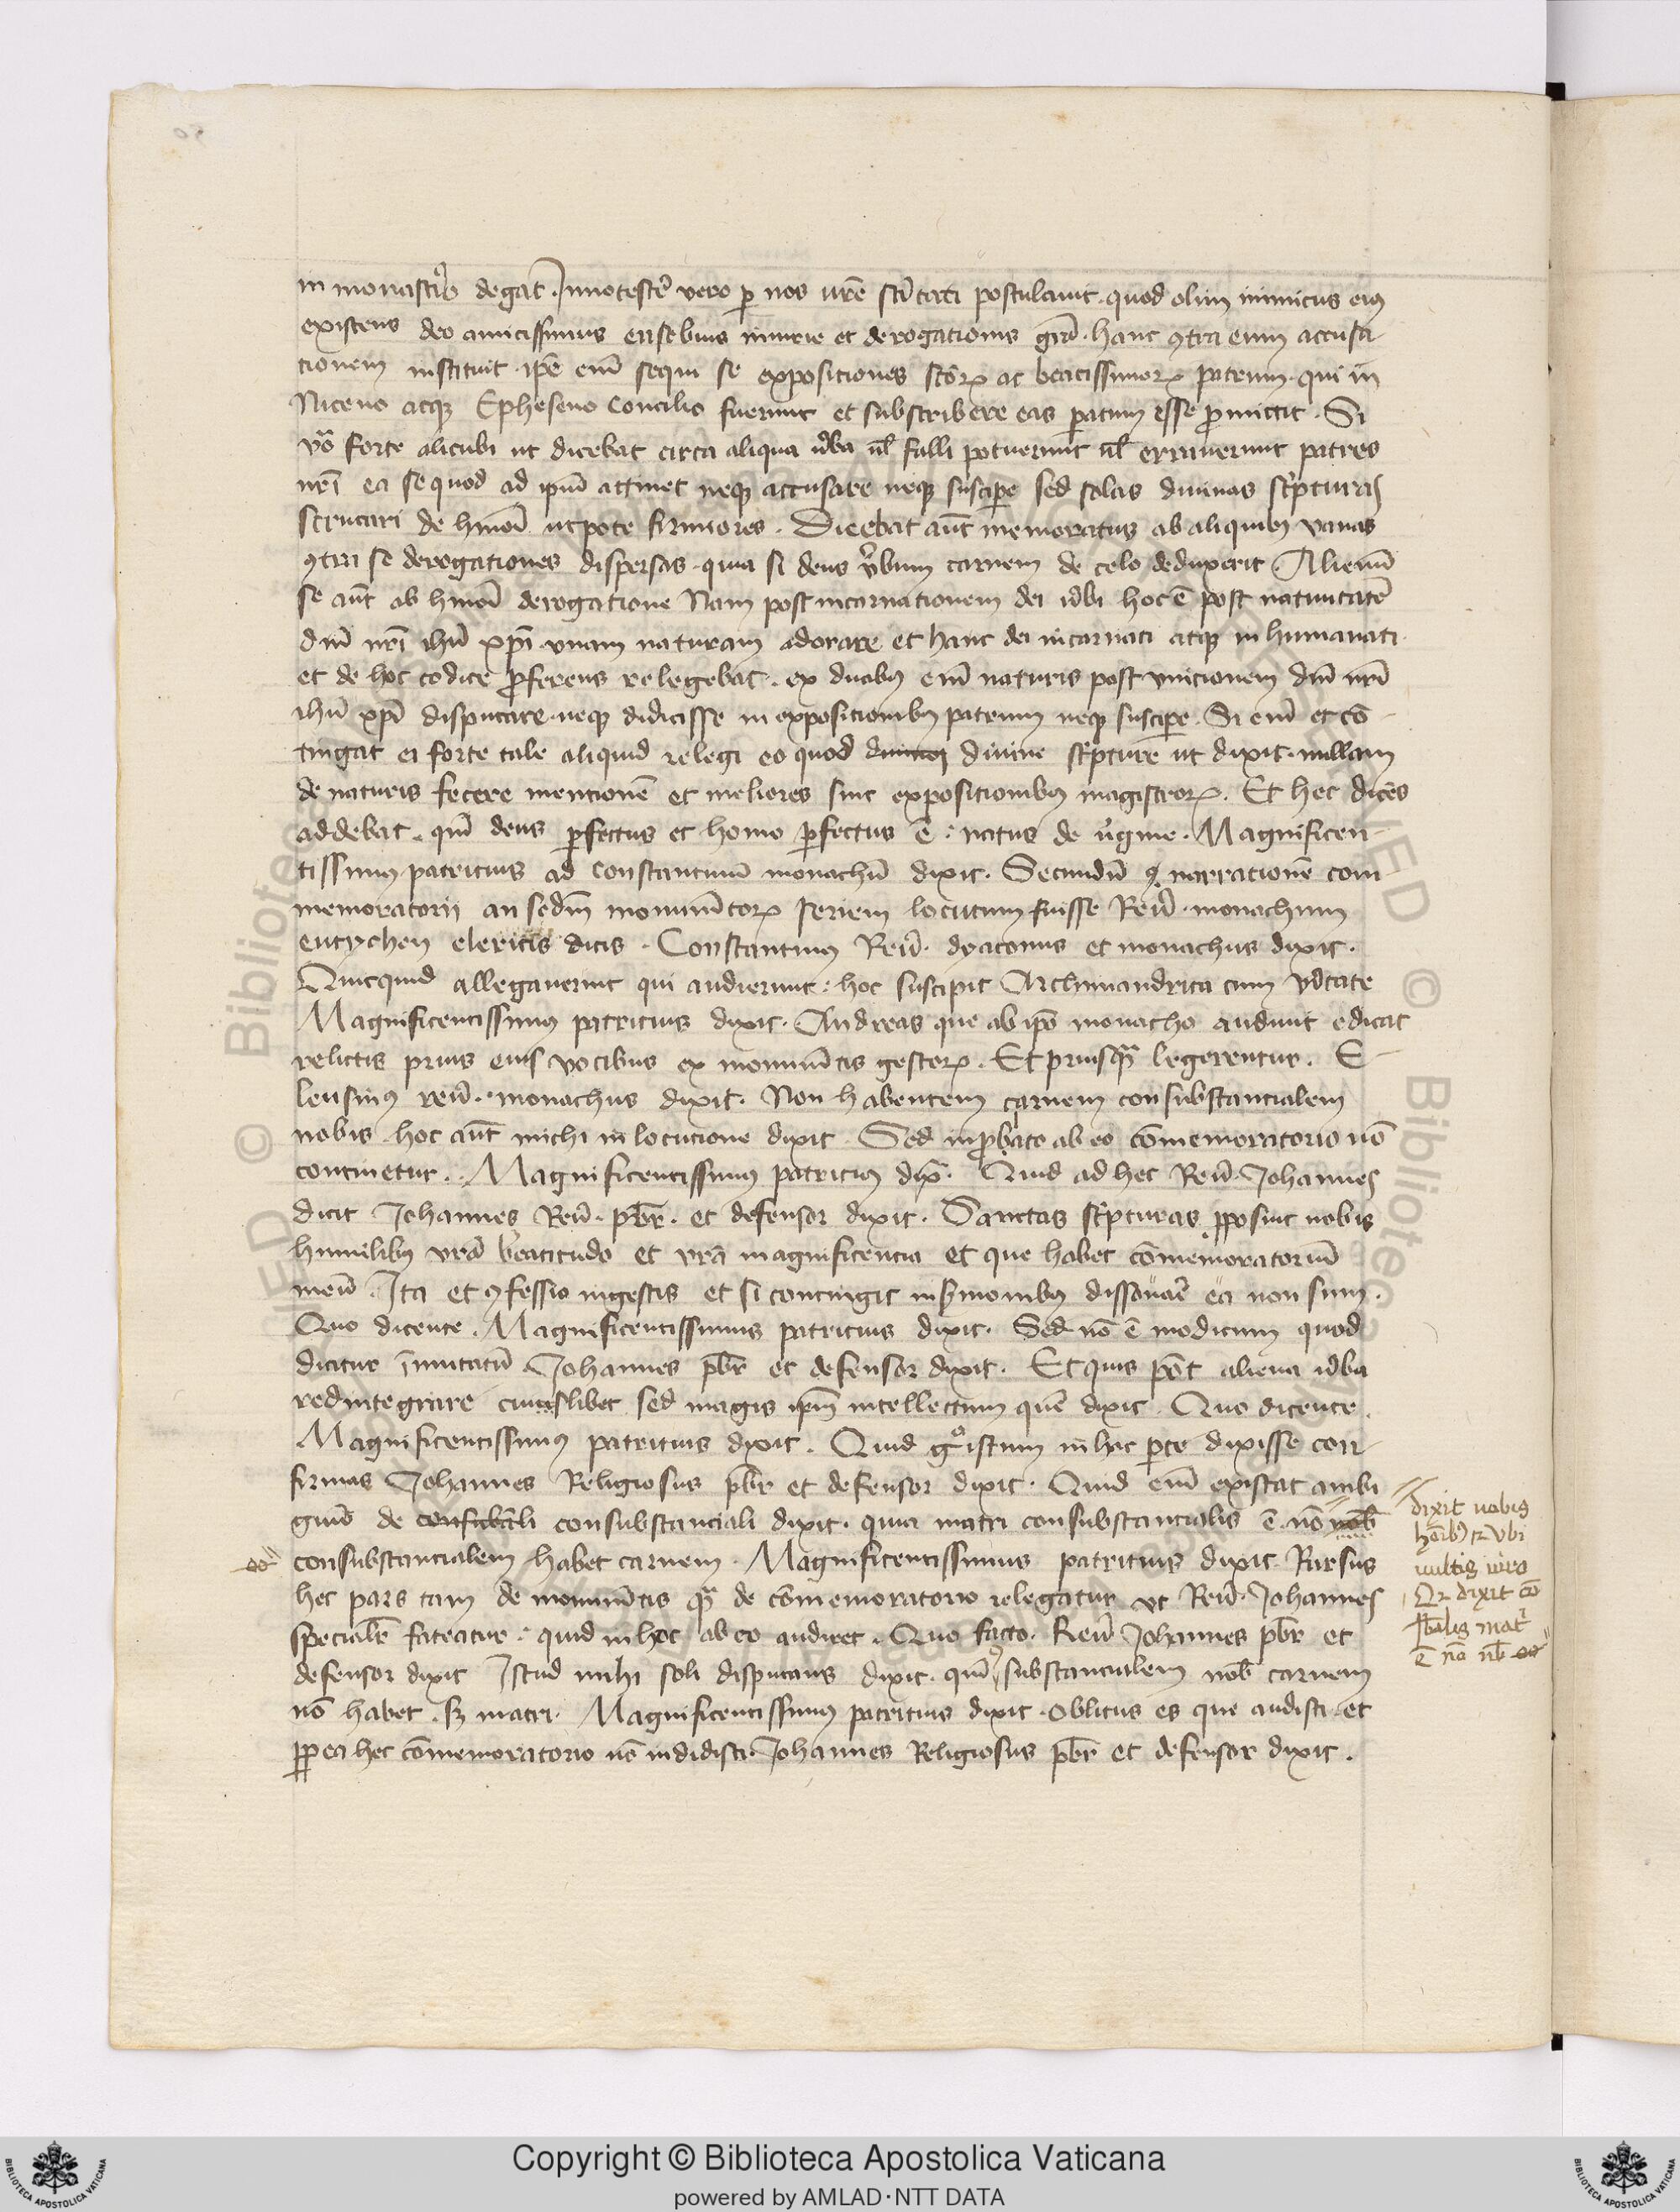 in monasterio degat. Innotescere vero p nos vr̄e sc̄itati postulavit. quod olim inimicus eiꝰ
existens deo amicissimus eusebius iniurie et derogationis gr̄a. hanc ꝯtra eum accusa
tionem instituit. ip̄e em̄ sequi se expositiones sc̄oꝝ ac beatissimoꝝ patrum. qui in
Niceno atqꝫ Epheseno Concilio fuerunt et subscribere eas paratum esse promittit. Si
vo forte alicubi ut dicebat circa aliqua v̄ba ul̄ falli potuerunt ul̄ erraverunt patres
nr̄i ea se quod ad ip̄um attinet neqꝫ accusare neqꝫ suscipe sed solas divinas sc̄pturas
scrutari de hmōi utpote firmiores. Dicebat aūt memoratus ab aliquibꝰ vanas
ꝯtra se derogationes dispersas. quia si deus v̄bum carnem de celo deduxerit. Alienū
se aūt ab hmōi derogatione Nam post incarnationem dei v̄bi hoc ē post nativitatē
dn̄i nr̄i ihū xp̄i unam naturam adorare et hanc dei incarnati atqꝫ in humanati
et de hoc codice proferens relegebat. ex duabꝰ em̄ naturis post unicionem dn̄i nr̄i
ihū xp̄i disputare. neqꝫ didicisse in expositionibꝰ patrum neqꝫ suscipe. Si em̄ et cō
tingat ei forte tale aliquid relegi eo quod divine sc̄pture ut dixit. nullam
de naturis fecere mentionē et meliores sint expositionibꝰ magistroꝝ. Et hec dicēs
addebat. qm̄ deus pfectus et homo pfectus ē: natus de v̄gine. Magnificen
tissimꝰ patritius ad Constantinū monachū dixit. Secundū ꝗ narrationē com
memoratorii an scdm̄ monumētoꝝ seriem locutum fuisse Reū. monachum
eutychen clericis dicis. Constantinꝰ Reū. dyaconus et monachus dixit.
Quicquid allegaverint qui audierunt: hoc suscipit Archimandrita cum v̄itate
Magnificentissimꝰ patritius dixit. Andreas que ab ip̄o monacho audiuit edicat
relictis prius eius vocibus ex monumētis gestoꝝ. Et priusꝗ̄ legerentur. E
leusinꝰ reū. monachus dixit. Non habentem carnem consubstancialem
nobis. hoc aūt michi in locutione dixit. Sed in probato ab eo cōmemoratorio nō
continetur. Magnificentissimꝰ patritiꝰ dix̄. Quid ad hec Reū. Johannes
dicit Johannes Reū. pb̄r. et defensor dixit. Sanctas sc̄pturas pposuit nobis
humilibꝰ vr̄a beatitudo et vr̄a magnificentia et que habet cōmemoratoriū
meū. Ita et ꝯfessio in gestis et si contingit in ẜmonibꝰ dissonāē ea non sum.
Quo dicente. Magnificentissimus patritius dixit. Sed nō ē modicum quod
dicitur īmutatū Johannes pb̄r et defensor dixit. Et quis pōt aliena v̄ba
redintegrare cuiuslibet sed magis ip̄m intellectum quē dixit. Quo dicente.
Magnificentissimꝰ patritius dixit. Quid gº istum in hac pte dixisse con
firmas Johannes Religiosus pb̄r et defensor dixit. Quid em̄ existat ambi
guū de consubstanciali dixit. quia matri consubstantialis ē nō nob̄
consubstantialem habet carnem. Magnificentissimus patritius dixit. Rursus
hec pars tam de monumētis ꝗ̄ de cōmemoratorio relegatur ut Reū. Johannes
specialē fateatur: quid in hoc ab eo audiret. Quo facto. Reū Johannes pb̄r et
defensor dixit Istud mihi soli disputans dixit. qm̄ ꝯsubstancialem nob̄ carnem
nō habet. sꝫ matri. Magnificentissimꝰ patritius dixit. Oblitus es que audisti et
pp ea hec cōmemoratorio nō indidisti. Johannes Religiosus pb̄r et defensor dixit.
dixit nobis
et ubi
multis
dixit cō
mat̄
ē nō nb̄
Copyright © Biblioteca Apostolica Vaticana
powered by AMLAD·NTT DATA